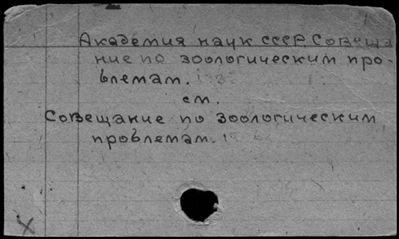 Академия наук СССР. Совеща
ние по зоологическим про-
блемам.
см.
Совещание по зоологическим
проблемам.